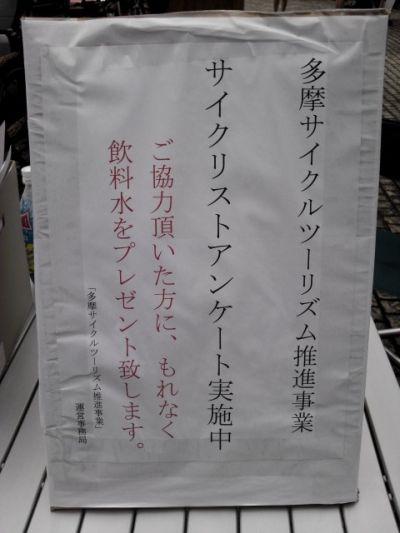 多摩サイクルツーリズム推進事業
サイクリストアンケート実施中
ご協力頂いた方に、もれなく
飲料水をプレゼント致します。
「多摩サイクルツーリズム推進事業」
運営事務局